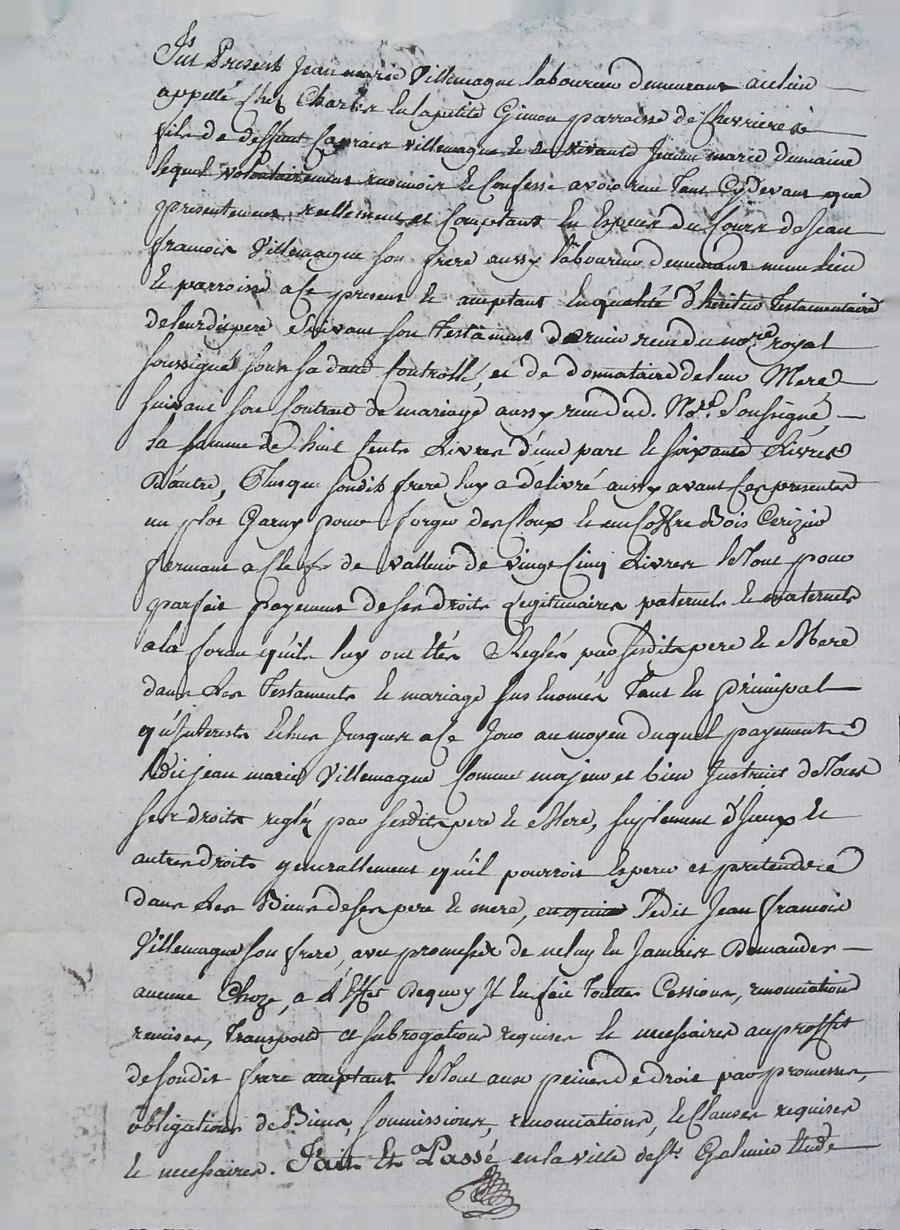 fut Present Jean marie Villemagne laboureur demeurant au lieu
appellé Chez Charles En la petite Gimon parroisse de Chevrieres
fils de deffunt Caprais Villemagne et de vivante Jeanne marie dumaine
lequel volontairement reconnoit et Confesse avoir reçu tant Cy devant que
presentement reellement et Comptant En Espèces du Cours de Jean
francois Villemagne son frere aussy laboureur demeurant meme lieu
et parroisse a Ce present et acceptant En qualité d'héritier testamentaire
de leur dit pere Suivant son testament dernier reçu du no.re royal
soussigné sous sa datte Controllé, et de donnataire de leur Mere
suivant son Contrat de mariage aussy reçu dud. No.re Soussigné,
la somme de huit Cents Livres d'une part et soixante Livres
d'autre, Plusque sondit frere luy a délivré aussy avant Ces presentes
un plot Garny pour forger des Cloux et un Coffre Bois Cerizier
fermant a Clef de valleur de vingt Cinq Livres le tout pour
parfait payement de ses droits Légitimaires paternels et maternels
a la forme qu'ils luy ont étés Reglés par sesdits pere et Mere
dans Les Testaments et mariage sus Enoncés tant En principal
qu'Interets Echus Jusques a Ce Jour au moyen duquel payement
Ledit jean marie Villemagne Comme majeur et bien Instruit de tous
ses droits reglés par sesdits pere et Mere, suplement d'iceux et
autres droits generallement qu'il pourroit Esperer et pretendre
dans Les Biens de ses pere et mere, en quitte ledit Jean francois
Villemagne son frere, avec promesse de ne luy En Jamais Demander
aucune Choze, a L'Effet Dequoy Il En fait toutes Cessions, renonciation
remises, transport et subrogation requises et necessaires au proffit
de sondit frere acceptant le tout aux peines de droit par promesses,
obligations de Biens, soumissions, renonciations, et Clauses requises
et necessaires. Fait Et Passé en la ville de St. Galmier Etude